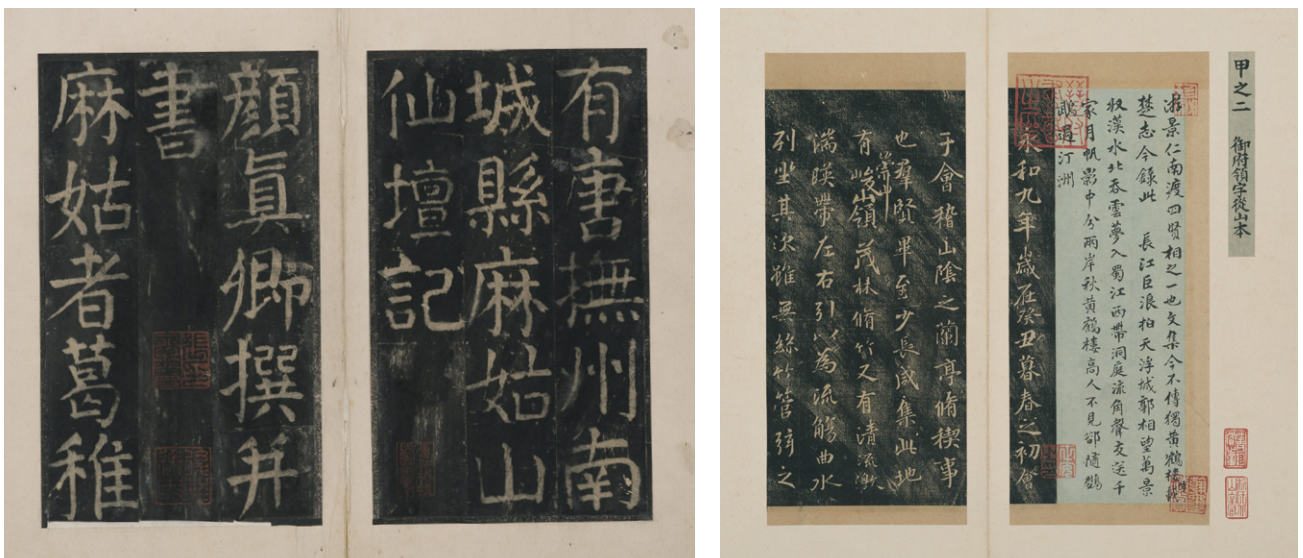 有唐撫州南
城縣麻姑山
仙壇記
顏真卿撰并
書
麻姑者葛稚
甲之二 御府領字從山本
游景仁南渡四賢相之一也文集今不傳獨黃鶴樓
楚志今錄此 長江巨浪拍天浮城郭相望萬景
收漢水北吞雲夢入蜀江西帶洞庭流角聲交送千
家月帆影中分兩岸秋黃鶴樓高人不見卻隨鸚
鵡過汀洲
永和九年歲在癸丑暮春之初會
于會稽山陰之蘭亭脩稧事
也羣賢畢至少長咸集此地
有崇山峻嶺茂林脩竹又有清流激
湍暎帶左右引以為流觴曲水
列坐其次雖無絲竹管弦之